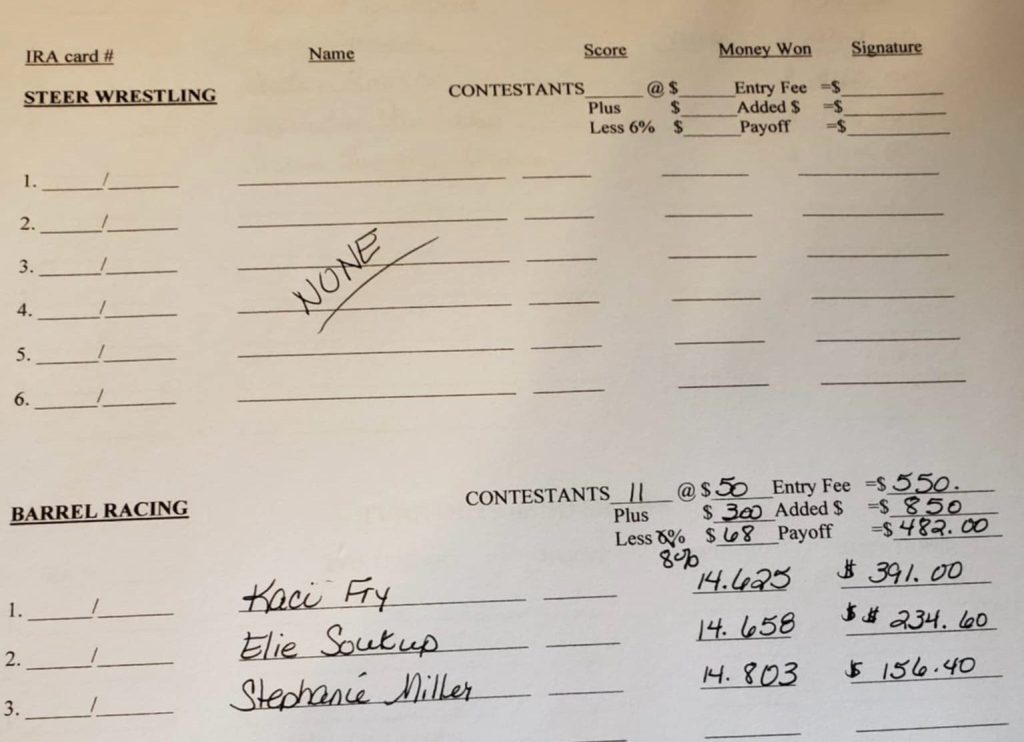 IRA card # Name Score Money Won Signature
STEER WRESTLING CONTESTANTS______ @ $______Entry Fee =$__________
Plus $______Added $ =$__________
Less 6% $______Payoff =$__________
1. ______/_______
2. ______/_______
3. ______/_______
NONE
4. ______/_______
5. ______/_______
6. ______/_______
BARREL RACING CONTESTANTS 11 @ $ 50 Entry Fee =$ 550.
Plus $ 300 Added $ =$ 850
Less 6% $ 68 Payoff =$ 482.00
8%
1. ______/_______ Kaci Fry 14.625 $ 391.00
2. ______/_______ Elie Soukup 14.658 $ $ 234.60
3. ______/_______ Stephanie Miller 14.803 $ 156.40